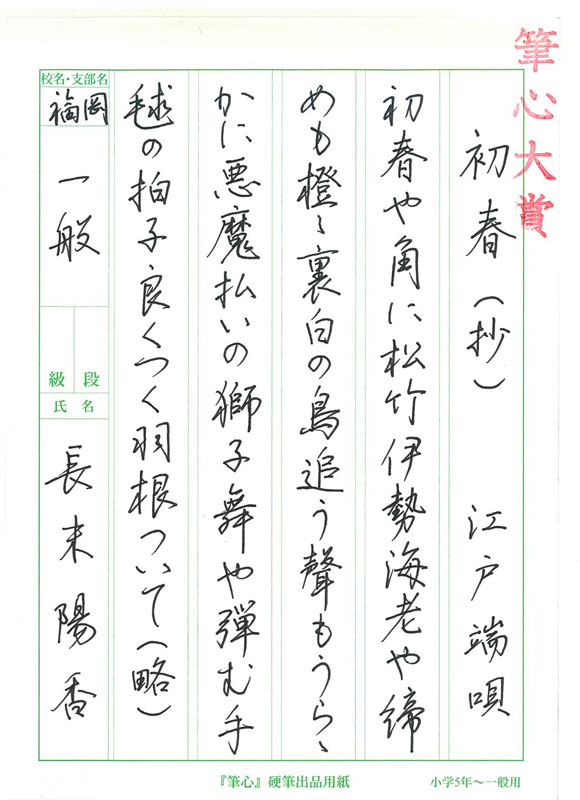 筆心大賞
初春（抄） 江戸端唄
初春や角に松竹伊勢海老や締
めも橙〻裏白の鳥追う聲もうらゝ
かに悪魔払いの獅子舞や弾む手
毬の拍子良くつく羽根ついて（略）
校名・支部名
福岡
一般
段
級
氏名
長末陽香
『筆心』硬筆出品用紙
小学5年～一般用